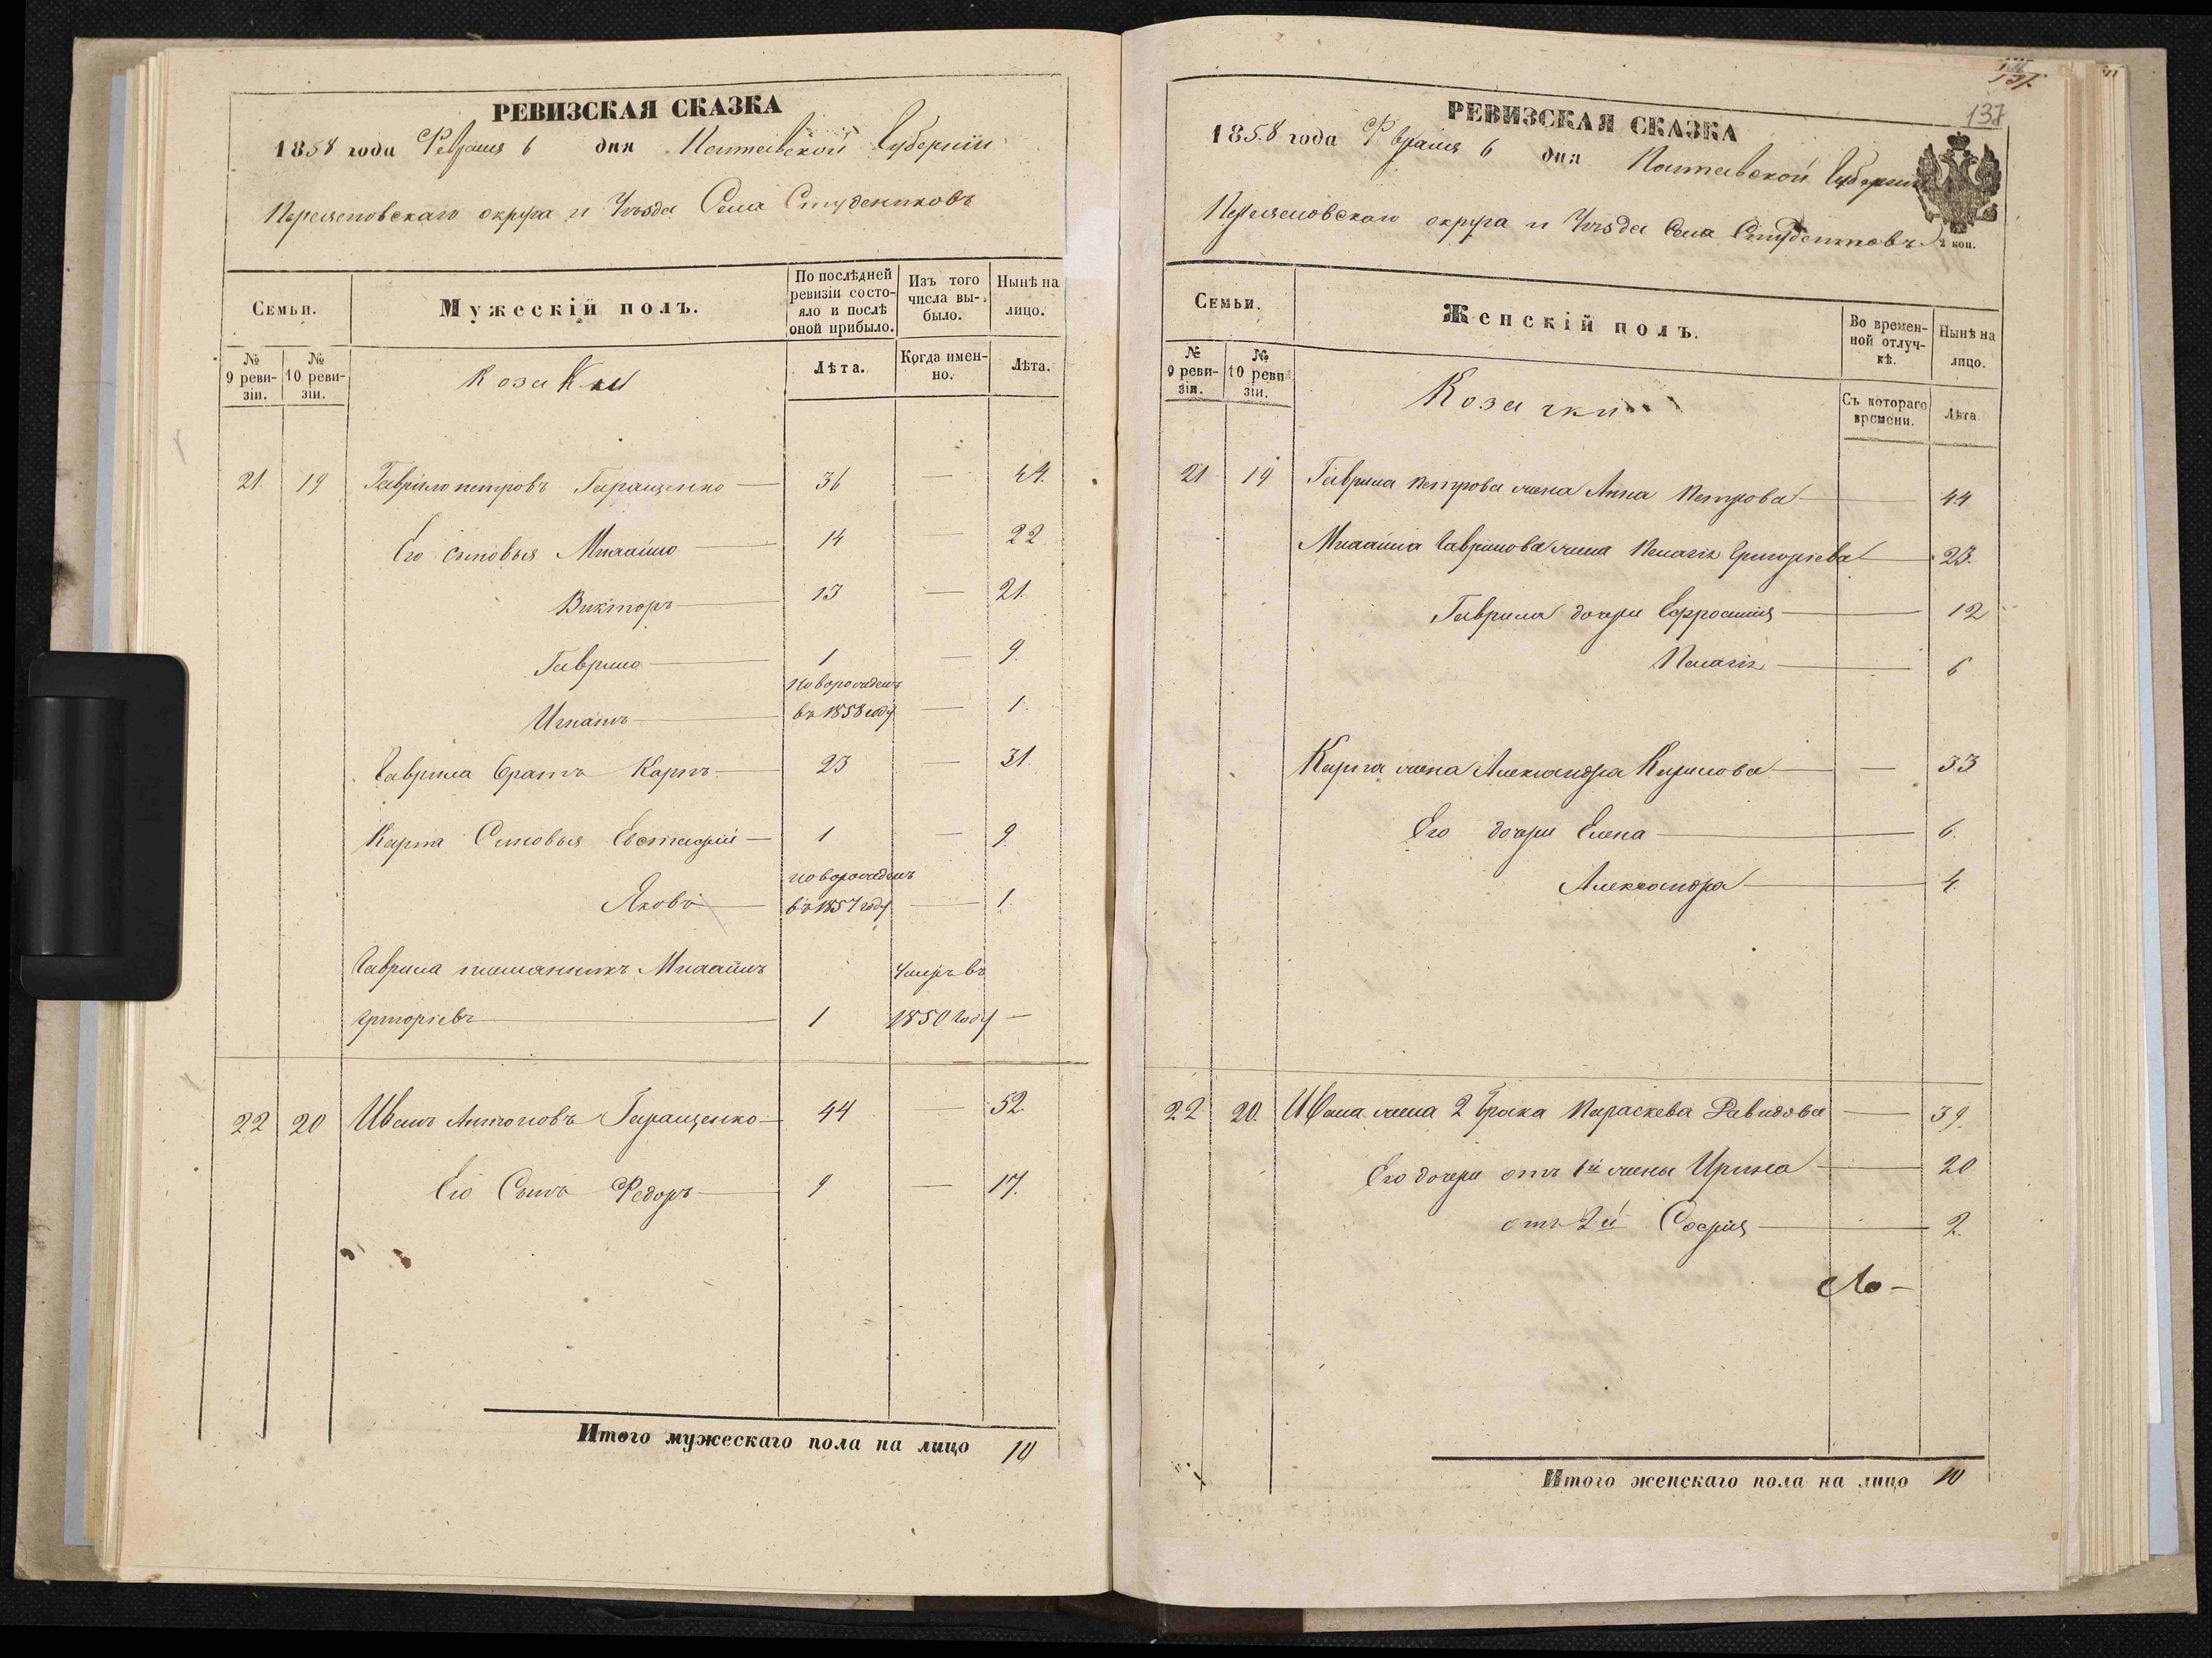 РЕВИЗСКАЯ СКАЗКА
1858 года Февраля 6 дня Полтавской Губерніи
Переяславскаго округа и Уѣзда Села Студениковъ
Семьи.
Мужескій полъ.
По послѣдней ревизіи состояло и послѣ оной прибыло.
Изъ того числа выбыло.
Нынѣ на лицо.
№ 9 ревизіи.
№ 10 ревизіи.
Козаки
Лѣта.
Когда именно.
Лѣта.
21. 19 Гаврило Петровъ Геращенко — 36 — 44.
Его сыновья Михайло — 14 — 22
Викторъ — 13 — 21.
Гаврило — 1 — 9.
Игнатъ — новорожденъ въ 1858 году — 1.
Гаврила братъ Карпъ — 23 — 31.
Карпа Сыновья Евстафій — 1 — 9
Яковъ — новорожденъ въ 1857 году — 1.
Гаврила племянникъ Михаилъ
Григорьевъ — 1 Умеръ въ 1850 году —
22 20 Иванъ Антоновъ Геращенко — 44 — 52.
Его Сынъ Федоръ — 9 — 17.
Итого мужескаго пола на лицо 10
137
РЕВИЗСКАЯ СКАЗКА
1858 года Февраля 6 дня Полтавской Губерніи
Переяславскаго округа и Уѣзда Села Студениковъ
коп.
Семьи.
Женскій полъ.
Во временной отлучкѣ.
Нынѣ на лицо.
№ 9 ревизіи.
№ 10 ревизіи.
Козачки
Съ котораго времени.
Лѣта
21 19 Гаврила Петрова жена Анна Петрова — 44
Михаила Гаврилова жена Пелагія Григорьева — 23.
Гаврила дочери Ефросинія — 12
Пелагія — 6
Карпа жена Александра Кирилова — — 33
Его дочери Елена — 6.
Александра — 4.
22 20. Ивана жена 2 брака Параскева Давидова — 39.
Его дочери отъ 1й жены Ирина — 20
отъ 2й Софія — 2.
Итого женскаго пола на лицо 10